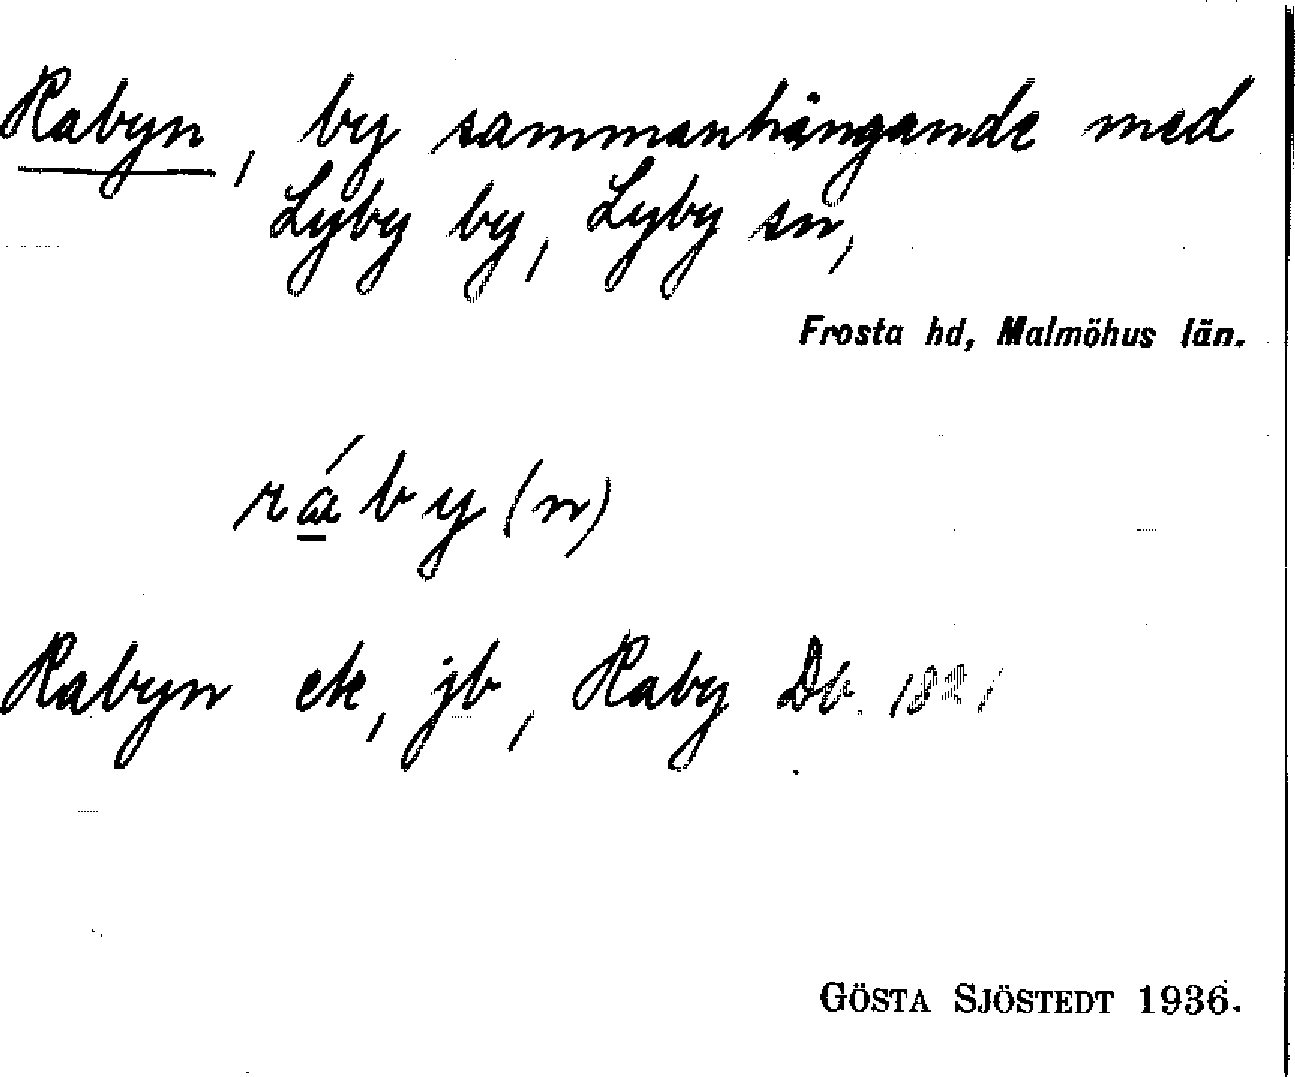 Rabyn, by sammanhängande med
Lyby by, Lyby sn,
Frosta hd, Malmöhus län.
rá̱by(n)
Rabyn ek, jb, Raby Db. 1821
GÖSTA SJÖSTEDT 1936.